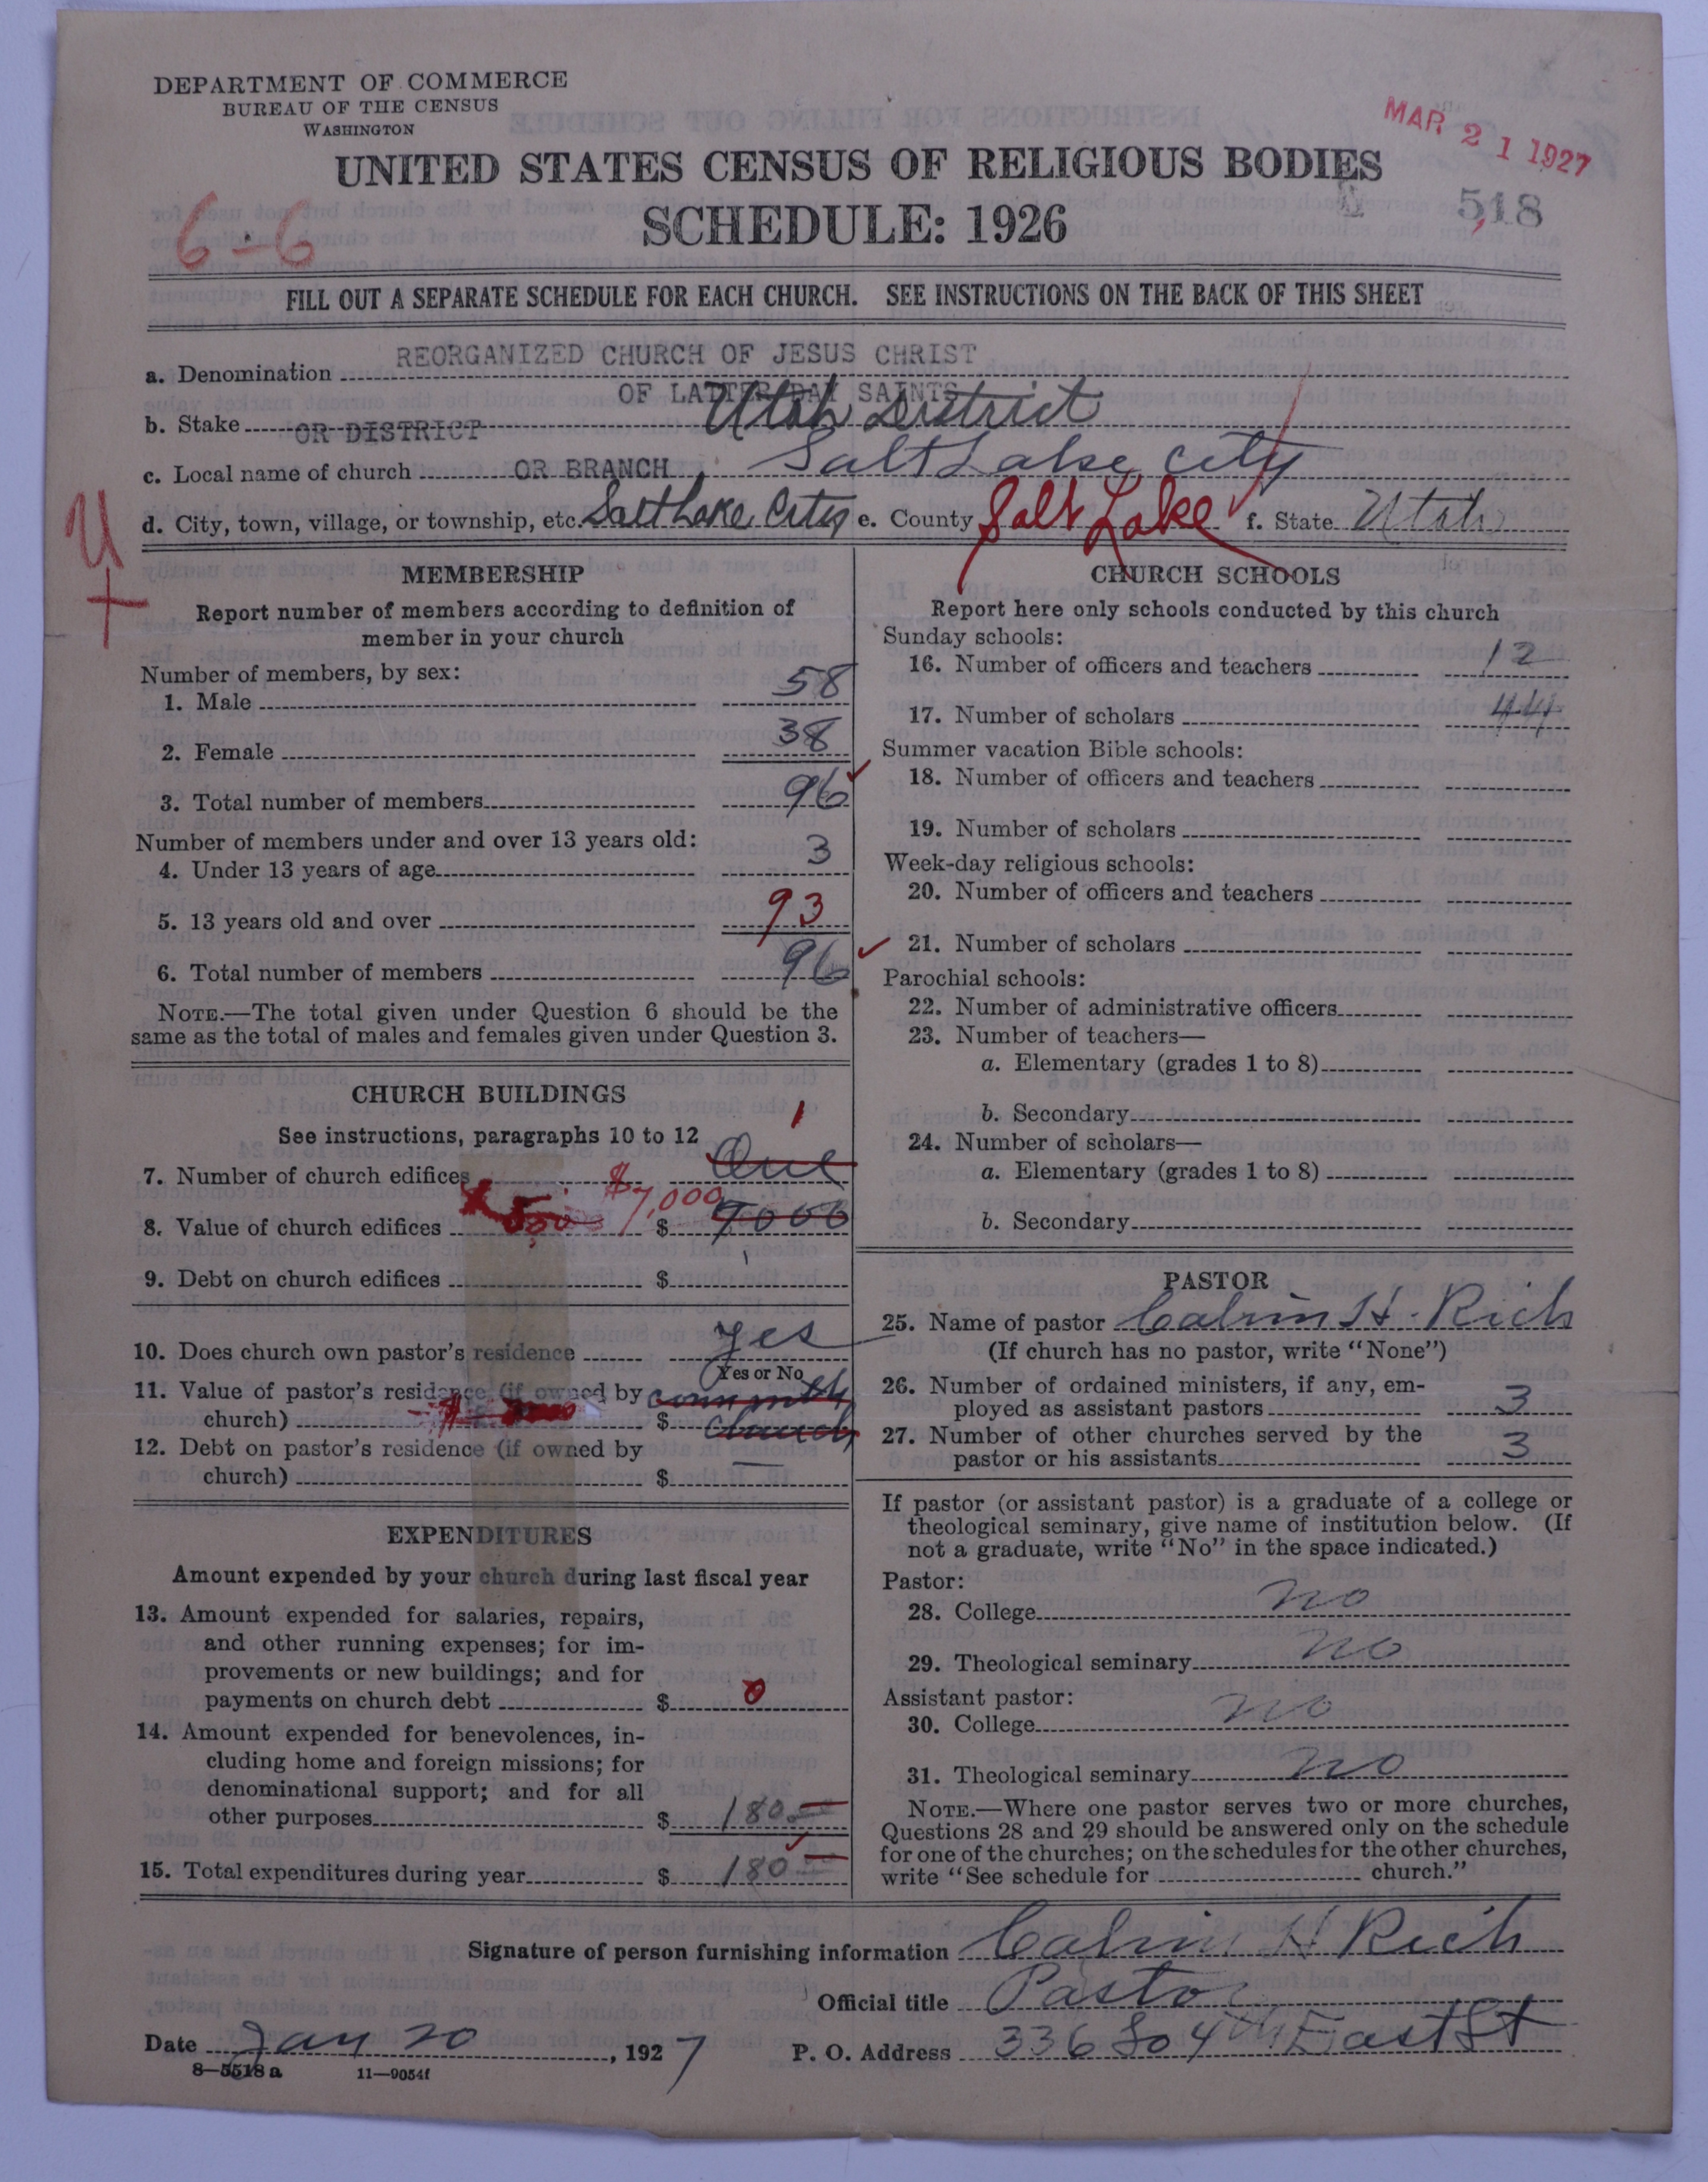 DEPARTMENT OF COMMERCE
BUREAU OF THE CENSUS
WASHINGTON
MAR 21 1927
UNITED STATES CENSUS OF RELIGIOUS BODIES
518
SCHEDULE: 1926
6-6
FILL OUT A SEPARATE SCHEDULE FOR EACH CHURCH. SEE INSTRUCTIONS ON THE BACK OF THIS SHEET
a. Denomination REORGANIZED CHURCH OF JESUS CHRIST
OF LATTER DAY SAINTS
b. Stake OR DISTRICT Utah District
c. Local name of church OR BRANCH Salt Lake City
d. City, town, village, or township, etc. Salt Lake City e. County Salt Lake f. State Utah
U
+
MEMBERSHIP
Report number of members according to definition of
member in your church
Number of members, by sex:
1. Male 58
2. Female 38
3. Total number of members 96
Number of members under and over 13 years old:
4. Under 13 years of age 3
5. 13 years old and over 93
6. Total number of members 96
NOTE.—The total given under Question 6 should be the
same as the total of males and females given under Question 3.
CHURCH BUILDINGS
See instructions, paragraphs 10 to 12
1
7. Number of church edifices One
$7,000
8. Value of church edifices $ 7000
9. Debt on church edifices $
10. Does church own pastor's residence yes
Yes or No
11. Value of pastor's residence (if owned by
church) $ church
12. Debt on pastor's residence (if owned by
church) $ —
EXPENDITURES
Amount expended by your church during last fiscal year
13. Amount expended for salaries, repairs,
and other running expenses; for im-
provements or new buildings; and for
payments on church debt $ 0
14. Amount expended for benevolences, in-
cluding home and foreign missions; for
denominational support; and for all
other purposes $ 180.
15. Total expenditures during year $ 180
CHURCH SCHOOLS
Report here only schools conducted by this church
Sunday schools:
16. Number of officers and teachers 12
17. Number of scholars 44
Summer vacation Bible schools:
18. Number of officers and teachers
19. Number of scholars
Week-day religious schools:
20. Number of officers and teachers
21. Number of scholars
Parochial schools:
22. Number of administrative officers
23. Number of teachers—
a. Elementary (grades 1 to 8)
b. Secondary
24. Number of scholars—
a. Elementary (grades 1 to 8)
b. Secondary
PASTOR
25. Name of pastor Calvin H. Rich
(If church has no pastor, write "None")
26. Number of ordained ministers, if any, em-
ployed as assistant pastors 3
27. Number of other churches served by the
pastor or his assistants 3
If pastor (or assistant pastor) is a graduate of a college or
theological seminary, give name of institution below. (If
not a graduate, write "No" in the space indicated.)
Pastor:
28. College no
29. Theological seminary no
Assistant pastor:
30. College no
31. Theological seminary no
NOTE.—Where one pastor serves two or more churches,
Questions 28 and 29 should be answered only on the schedule
for one of the churches; on the schedules for the other churches,
write "See schedule for church."
Signature of person furnishing information Calvin H Rich
Official title Pastor
Date Jan 20, 1927 P. O. Address 336 So 4th East St
8—5518 a 11—9054f